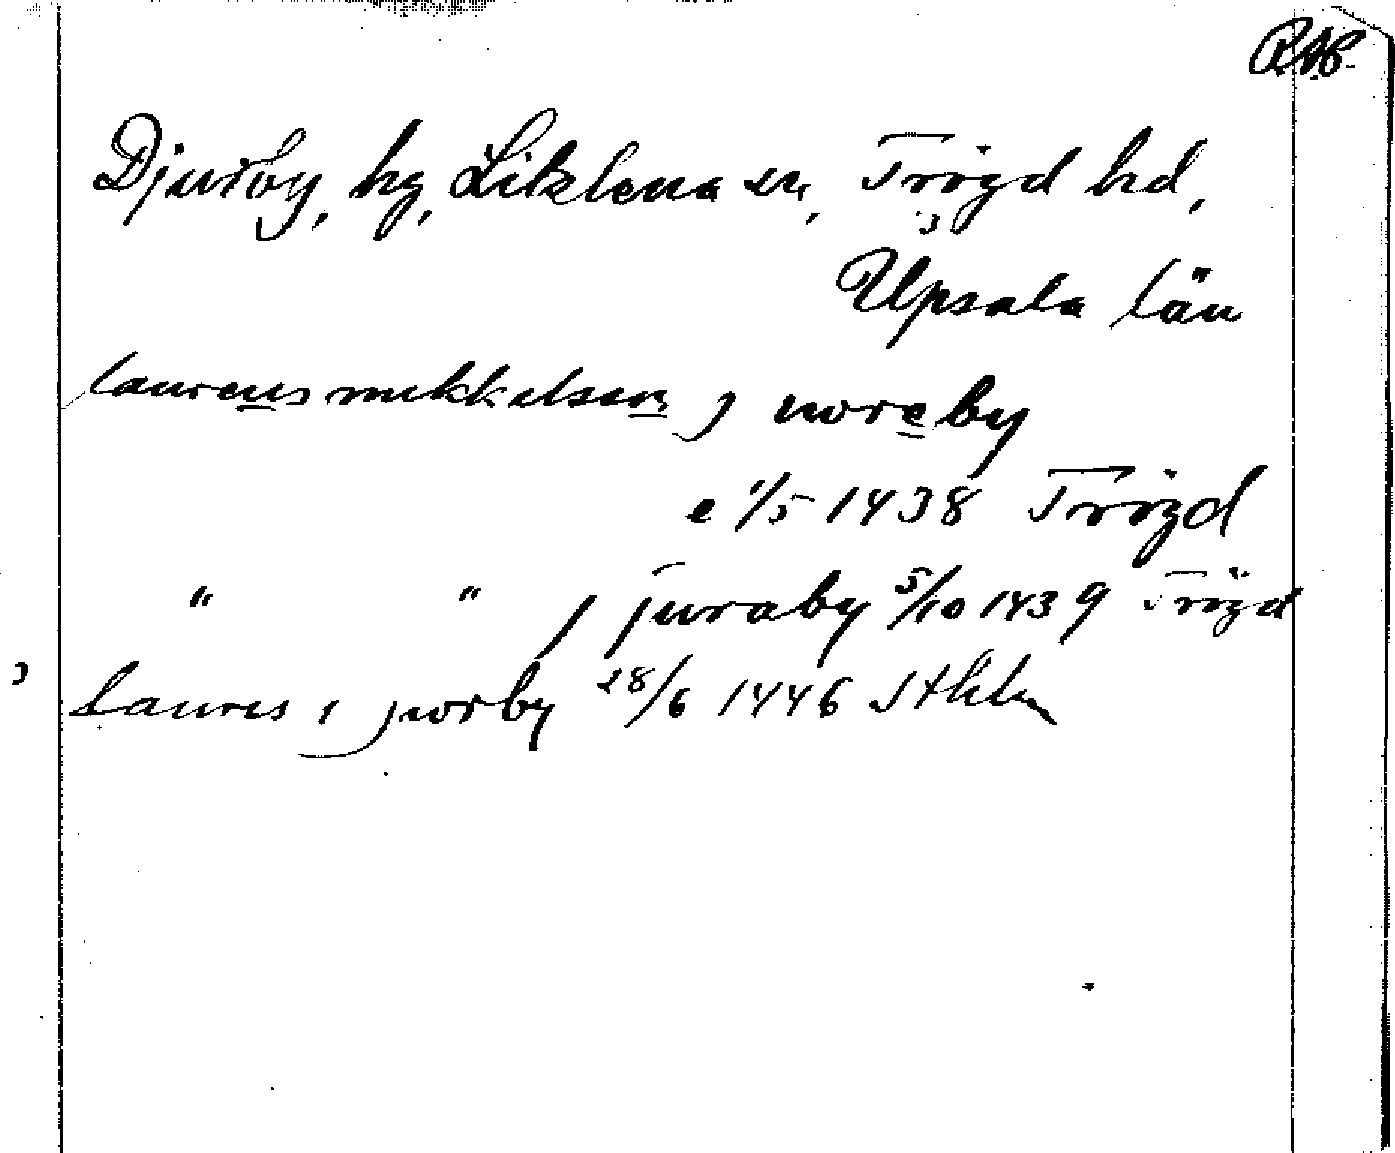 Djurby, hg, Litslena sn, Trögd hd,
Upsala län
laurens mikkelson j ivreby
e 1/5 1438 Trögd
" " j juraby 5/10 1439 Trögd
Lauris i jurby 28/6 1446 Sthlm